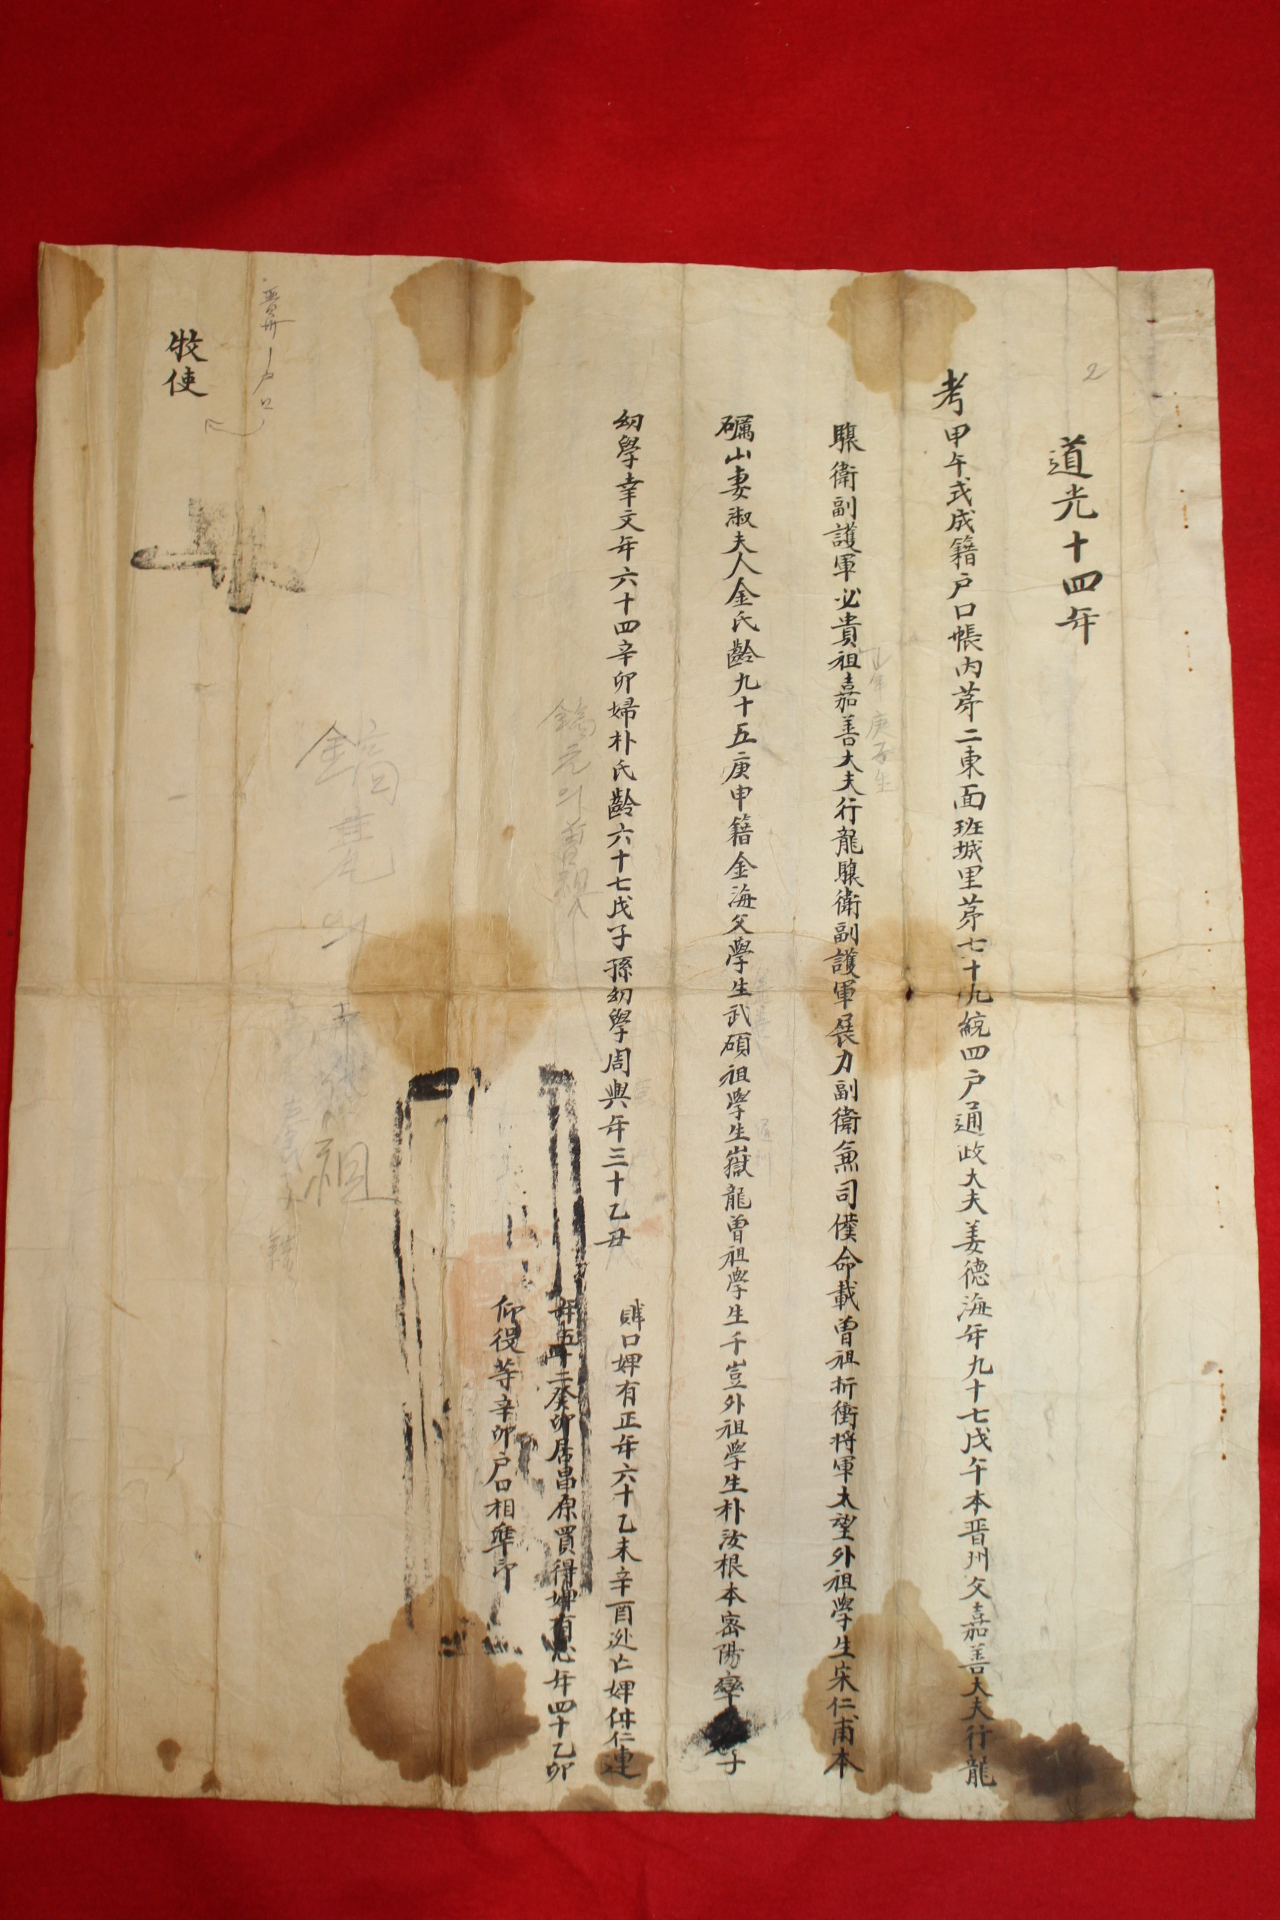 2
道光十四年
考甲午式成籍戶口帳內第二東面班城里第七十九統四戶通政大夫姜德海年九十七戊午本晋州父嘉善大夫行龍
驤衛副護軍必貴祖嘉善大夫行龍驤衛副護軍展力副衛兼司僕命載曾祖折衝將軍太望外祖學生宋仁甫本
礪山妻淑夫人金氏齡九十五庚申籍金海父學生武碩祖學生嶽龍曾祖學生千豈外祖學生朴汝根本密陽率子
幼學幸文年六十四辛卯婦朴氏齡六十七戊子孫幼學周興年三十乙丑
賤口婢有正年六十乙未辛酉逃亡婢件仁連
年五十二癸卯居昌原買得婢有心年四十乙卯
仰役等辛卯戶口相準印
牧使
庚子生
祖
戶口